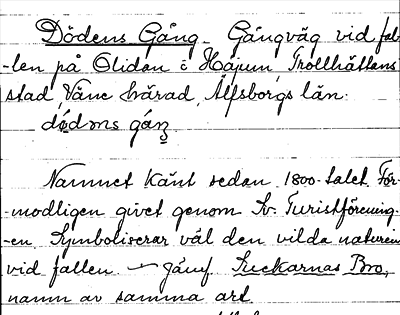 Dödens Gång - Gångväg vid fal-
-len på Olidan i Håjum, Trollhättans
stad, Väne härad, Älfsborgs län.
Namnet känt sedan 1800-talet. För-
-modligen givet genom Sv. Turistförening-
-en. Symboliserar väl den vilda naturen
vid fallen — jämf Suckarnas Bro,
namn av samma art